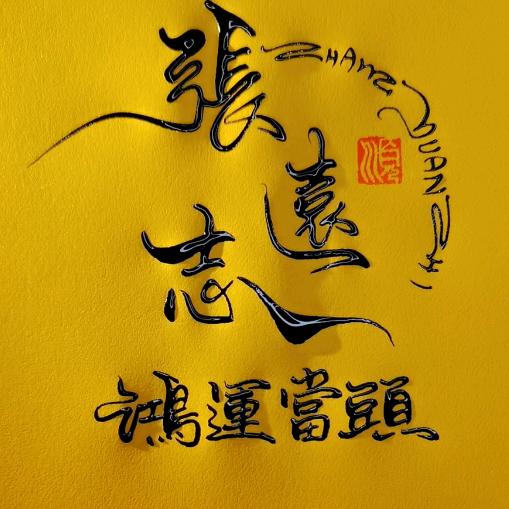 張遠志
ZHANG YUAN ZHI
鴻運當頭